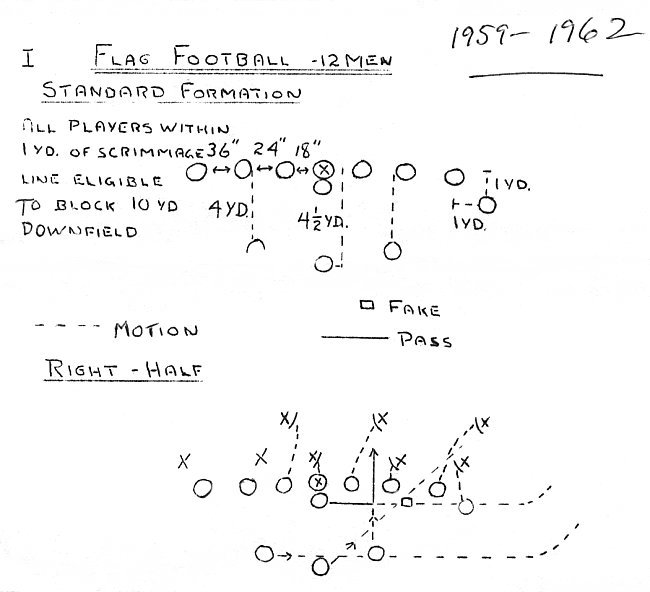 1959-1962
I FLAG FOOTBALL -12 MEN
STANDARD FORMATION
ALL PLAYERS WITHIN
1 YD. OF SCRIMMAGE 36" 24" 18"
LINE ELIGIBLE
1 YD.
TO BLOCK 10 YD 4 YD. 4½ YD.
1 YD.
DOWNFIELD
FAKE
---- MOTION
PASS
RIGHT - HALF
X X X X X X X X X X